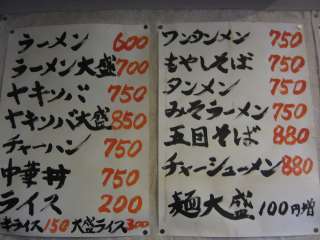 ラーメン 600
ラーメン大盛 700
ヤキソバ 750
ヤキソバ大盛 850
チャーハン 750
中華丼 750
ライス 200
半ライス 150 大盛ライス 300
ワンタンメン 750
もやしそば 750
タンメン 750
みそラーメン 750
五目そば 880
チャーシューメン 880
麺大盛 100円増